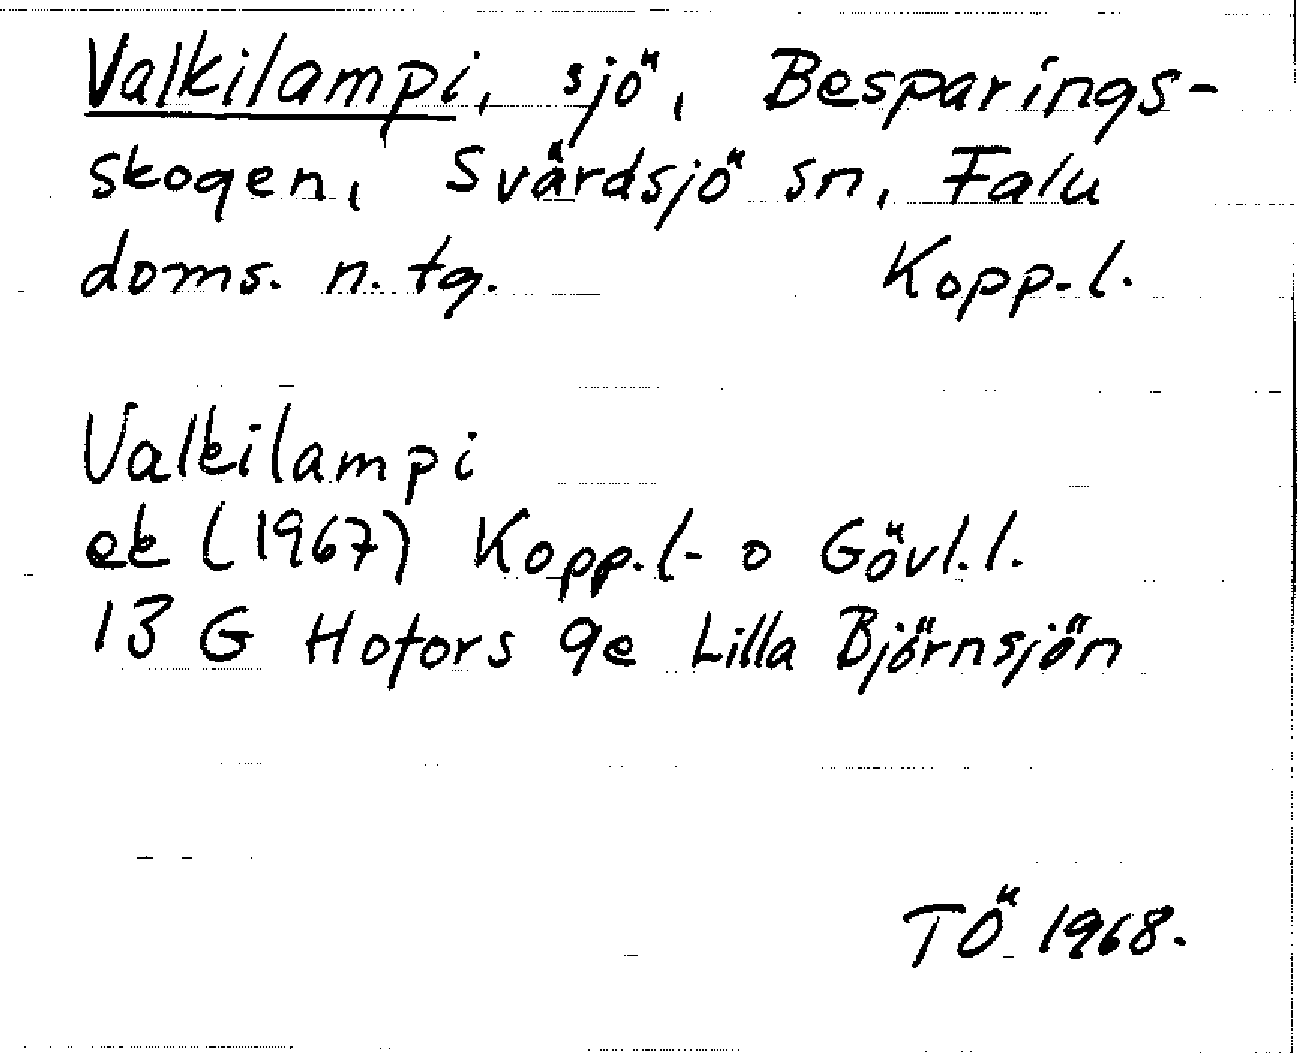 Valkilampi, sjö, Besparings-
skogen, Svärdsjö sn, Falu
doms. n. tg. Kopp-l.
Valkilampi
ek (1967) Kopp.l- o Gävl.l.
13 G Hofors 9e Lilla Björnsjön
TÖ 1968.